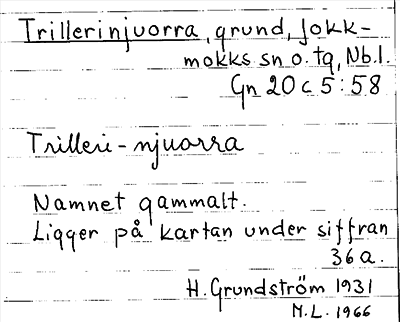 Trillerinjuorra, grund, Jokk-
mokks sn o. tg, Nb.l.
Gn 20 C 5:58
Trilleri-njuorra
Namnet gammalt.
Ligger på kartan under siffran
36a.
H. Grundström 1931
M.L. 1966